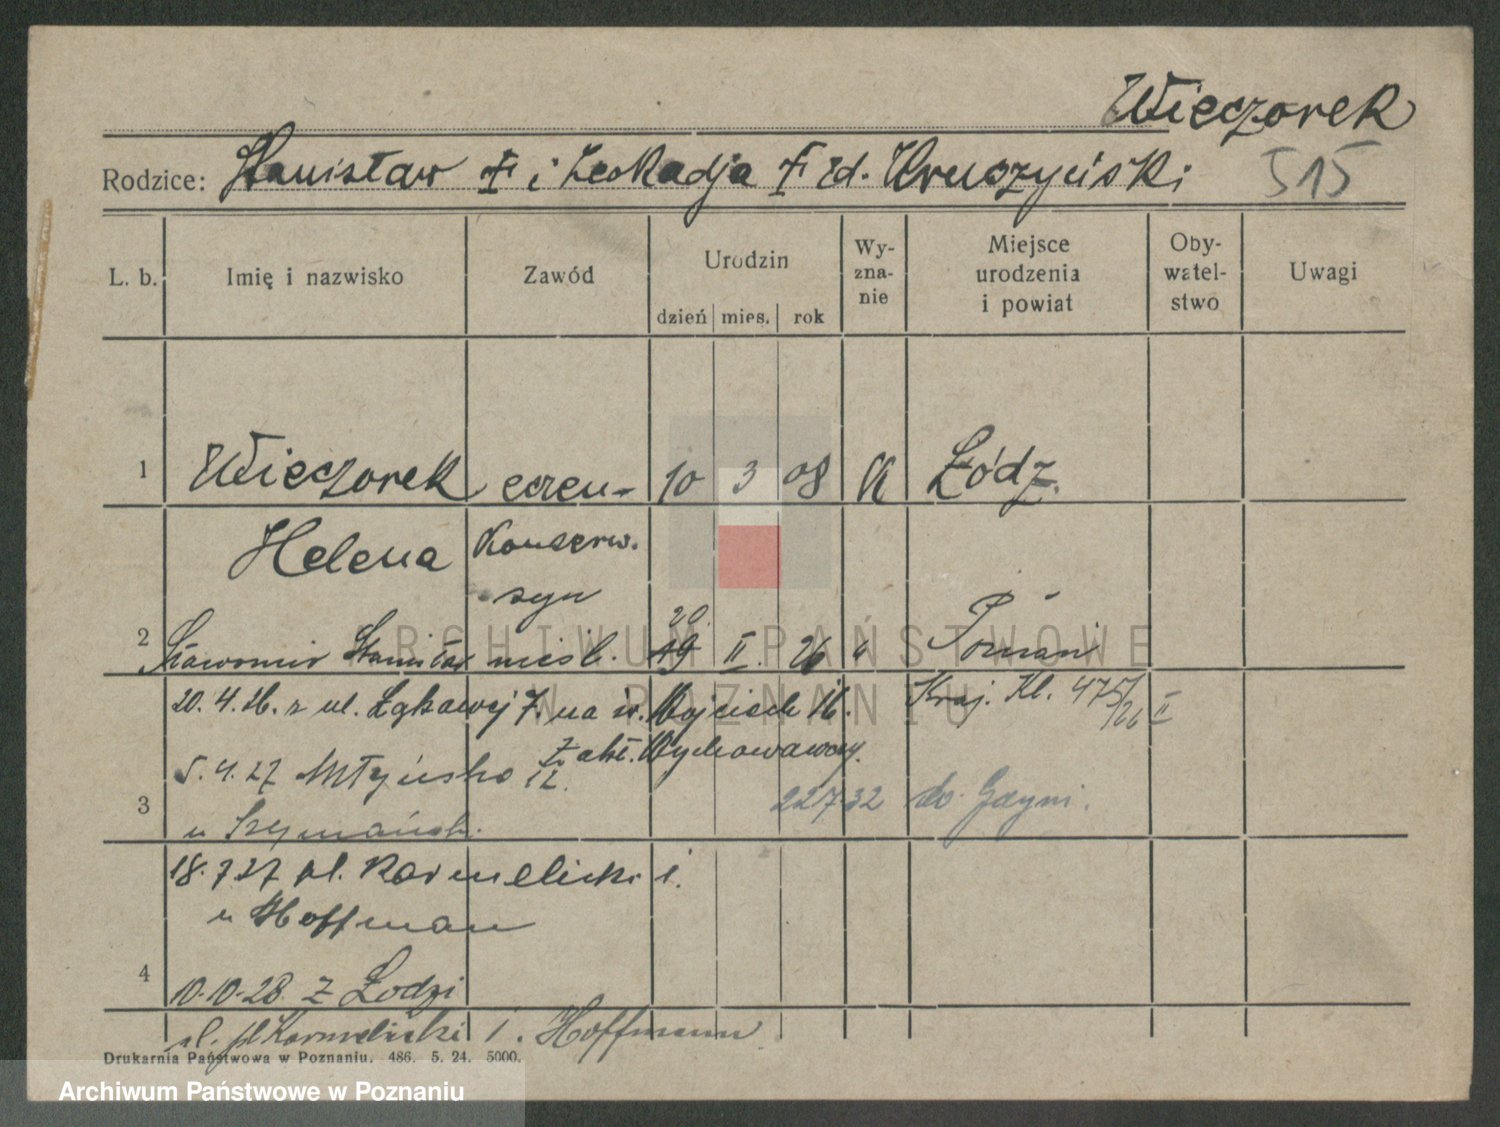 Wieczorek
Rodzice: Stanisław i Leokadja zd. Kruszyński 515
L. b. Imię i nazwisko Zawód Urodzin Wy- Miejsce Oby- Uwagi
zna- urodzenia watel-
nie i powiat stwo
dzień mies. rok
1 Wieczorek uczen- 10 3 08 K Łódz.
Helena Konserw.
syn 20
2 Sławomir Stanisław nieśl. 19 II. 26 " Poznań
20. 4. 26. z ul. Łąkowej 7. na św. Wojciech 16. Kraj. Kl. 475/26 II
Zakł. Wychowawczy.
5. 4. 27 Młyńska 12.
3 22 7 32 do Gdyni.
u Szymańsk.
18. 7 27 pl. Karmelicki 1.
u Hoffman
4 10.10.28 z Łodzi
pl. Karmelicki 1. Hoffmann
Drukarnia Państwowa w Poznaniu. 486. 5. 24. 5000.
ARCHIWUM PAŃSTWOWE
W POZNANIU
Archiwum Państwowe w Poznaniu